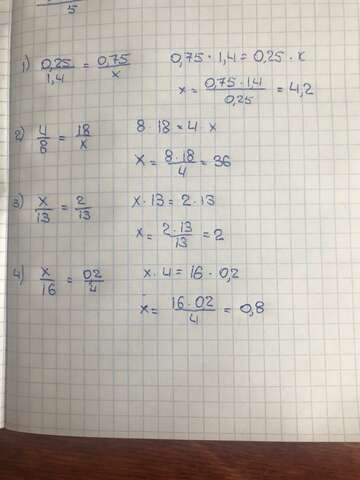 5
1) 0,25/1,4 = 0,75/x 0,75 · 1,4 = 0,25 · x
x = 0,75·1,4/0,25 = 4,2
2) 4/8 = 18/x 8·18 = 4·x
x = 8·18/4 = 36
3) x/13 = 2/13 x·13 = 2·13
x = 2·13/13 = 2
4) x/16 = 02/4 x·4 = 16·0,2
x = 16·02/4 = 0,8